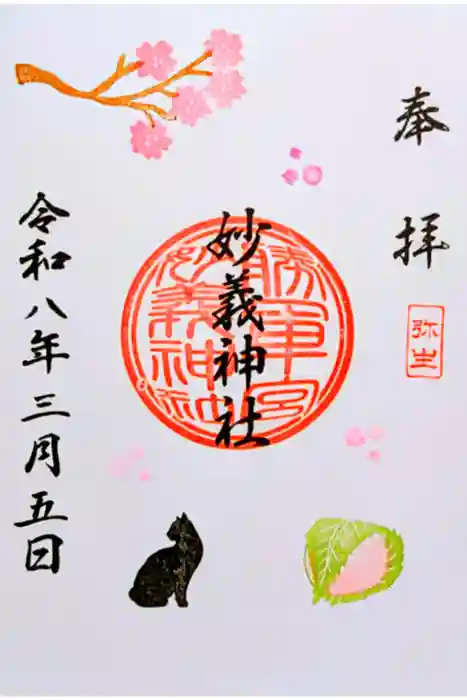 奉拝
弥生
妙義神社
勝軍宮
妙義神社
令和八年三月五日